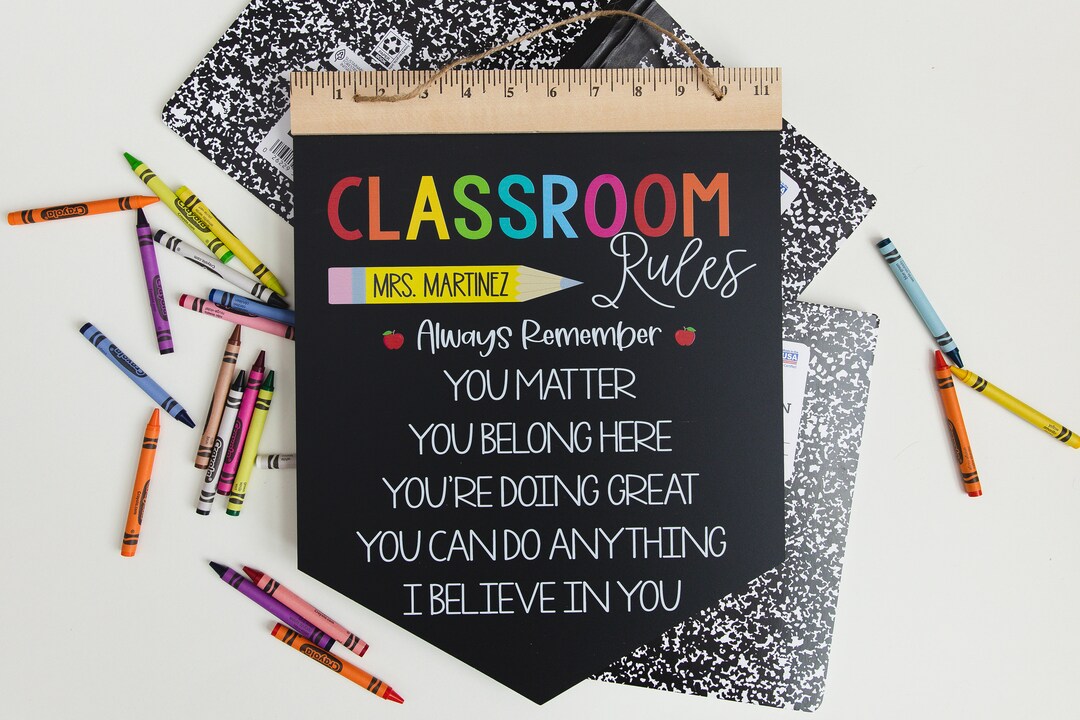 1 2 3 4 5 6 7 8 9 10 11
CLASSROOM
Rules
MRS. MARTINEZ
Always Remember
YOU MATTER
YOU BELONG HERE
YOU'RE DOING GREAT
YOU CAN DO ANYTHING
I BELIEVE IN YOU
Crayola
Crayola
Crayola
Crayola
Crayola
Crayola
USA